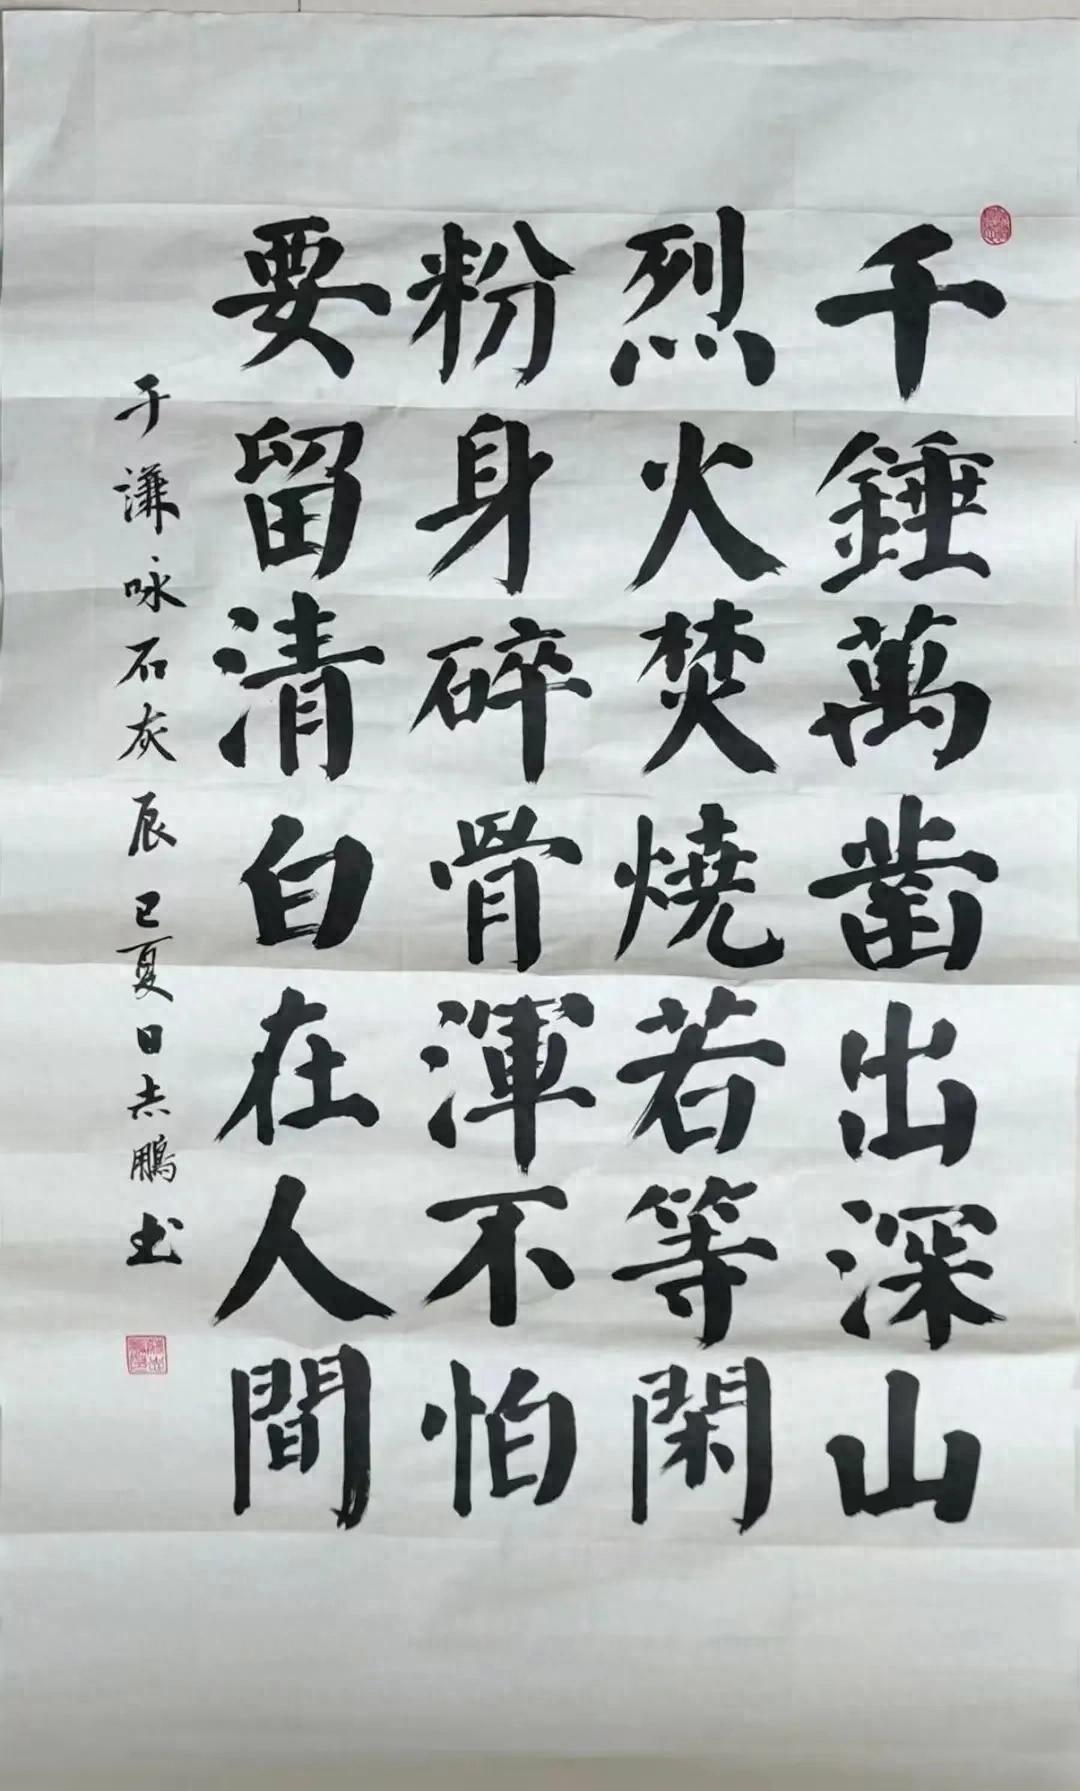 千錘萬鑿出深山
烈火焚燒若等閑
粉身碎骨渾不怕
要留清白在人間
于謙咏石灰辰巳夏日志鵬书